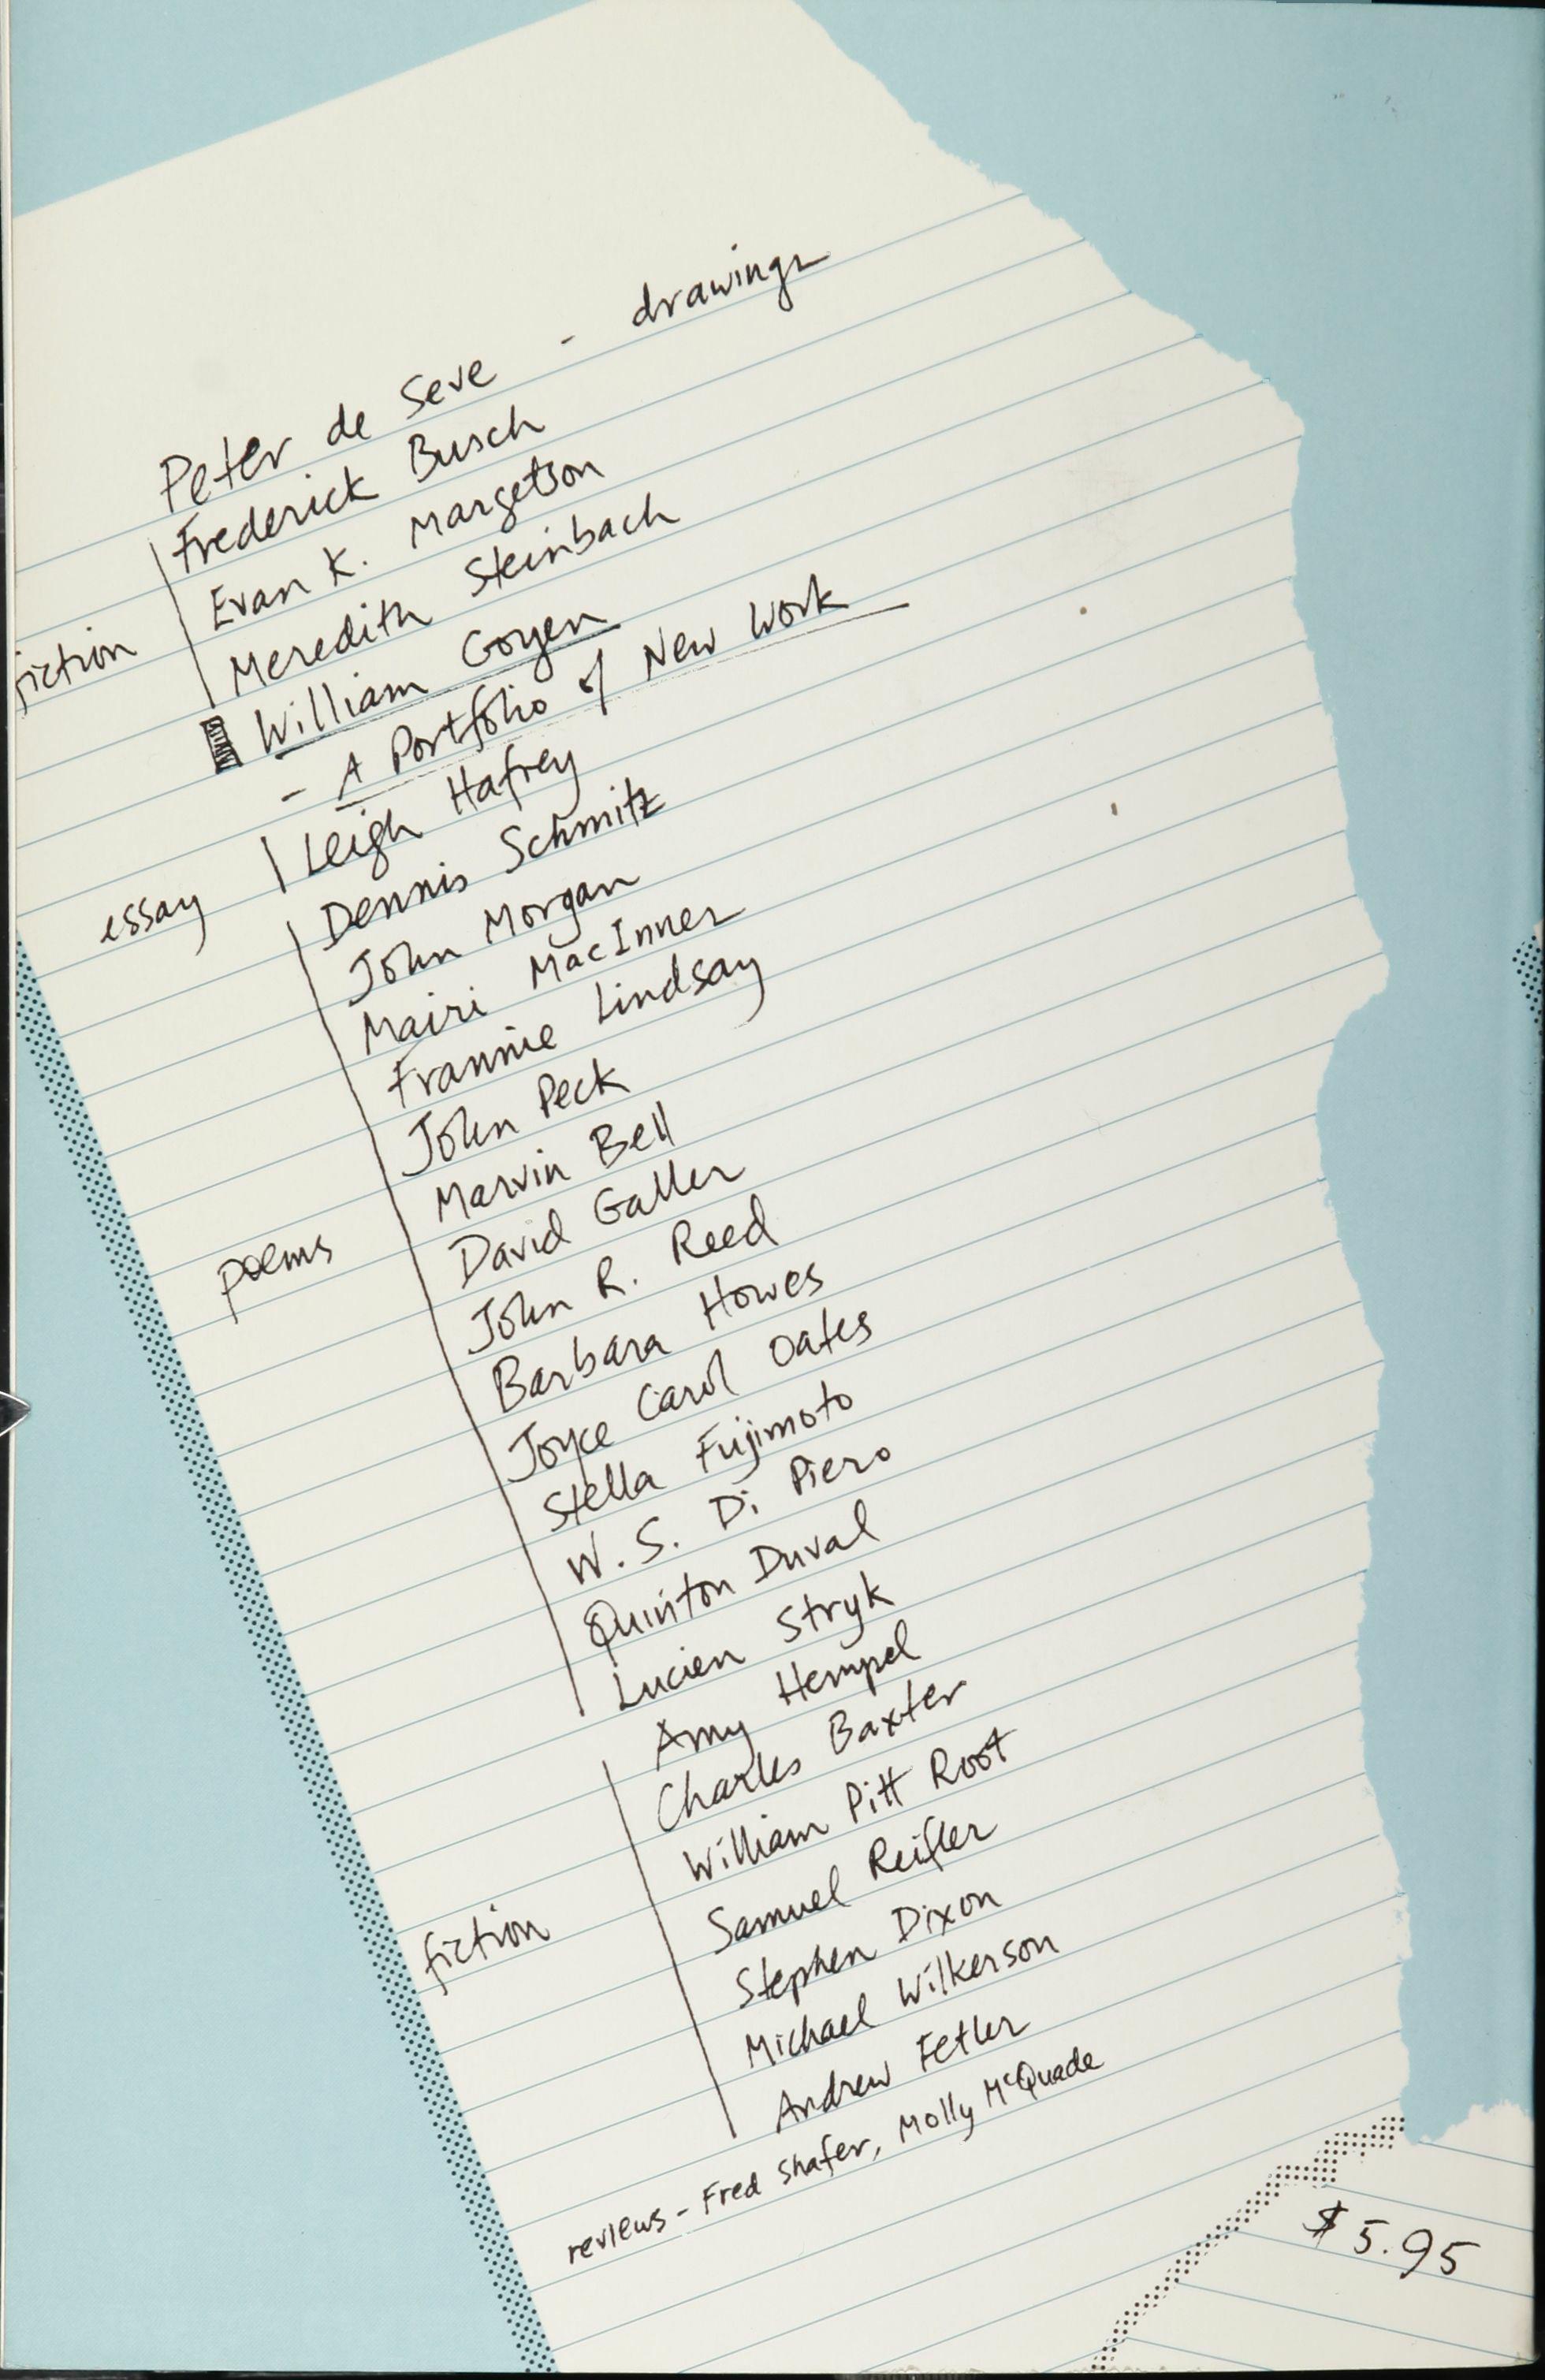 Peter de Seve - drawings
Frederick Busch
Evan K. Margetson
fiction
Meredith Steinbach
William Goyen
- A Portfolio of New Work
Leigh Hafrey
essay
Dennis Schmitz
John Morgan
Mairi MacInnes
Frannie Lindsay
John Peck
Marvin Bell
poems
David Galler
John R. Reed
Barbara Howes
Joyce Carol Oates
Stella Fujimoto
W. S. Di Piero
Quinton Duval
Lucien Stryk
Amy Hempel
Charles Baxter
William Pitt Root
fiction
Samuel Reifler
Stephen Dixon
Michael Wilkerson
Andrew Fetler
reviews - Fred Shafer, Molly McQuade
$5.95